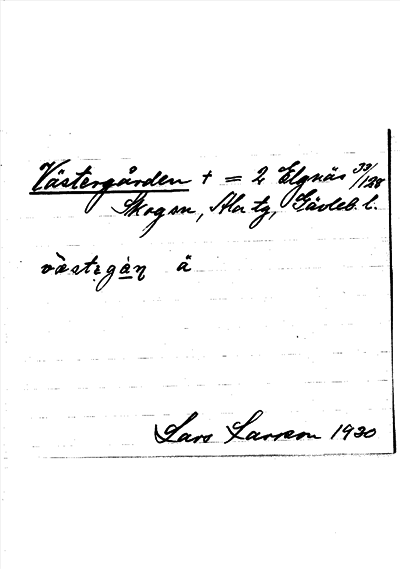 Västergården + = 2 Elgnäs 33/128
Skogsn, Ala tg, Gävleb. l.
vàstegàn ä
Lars Larsson 1930